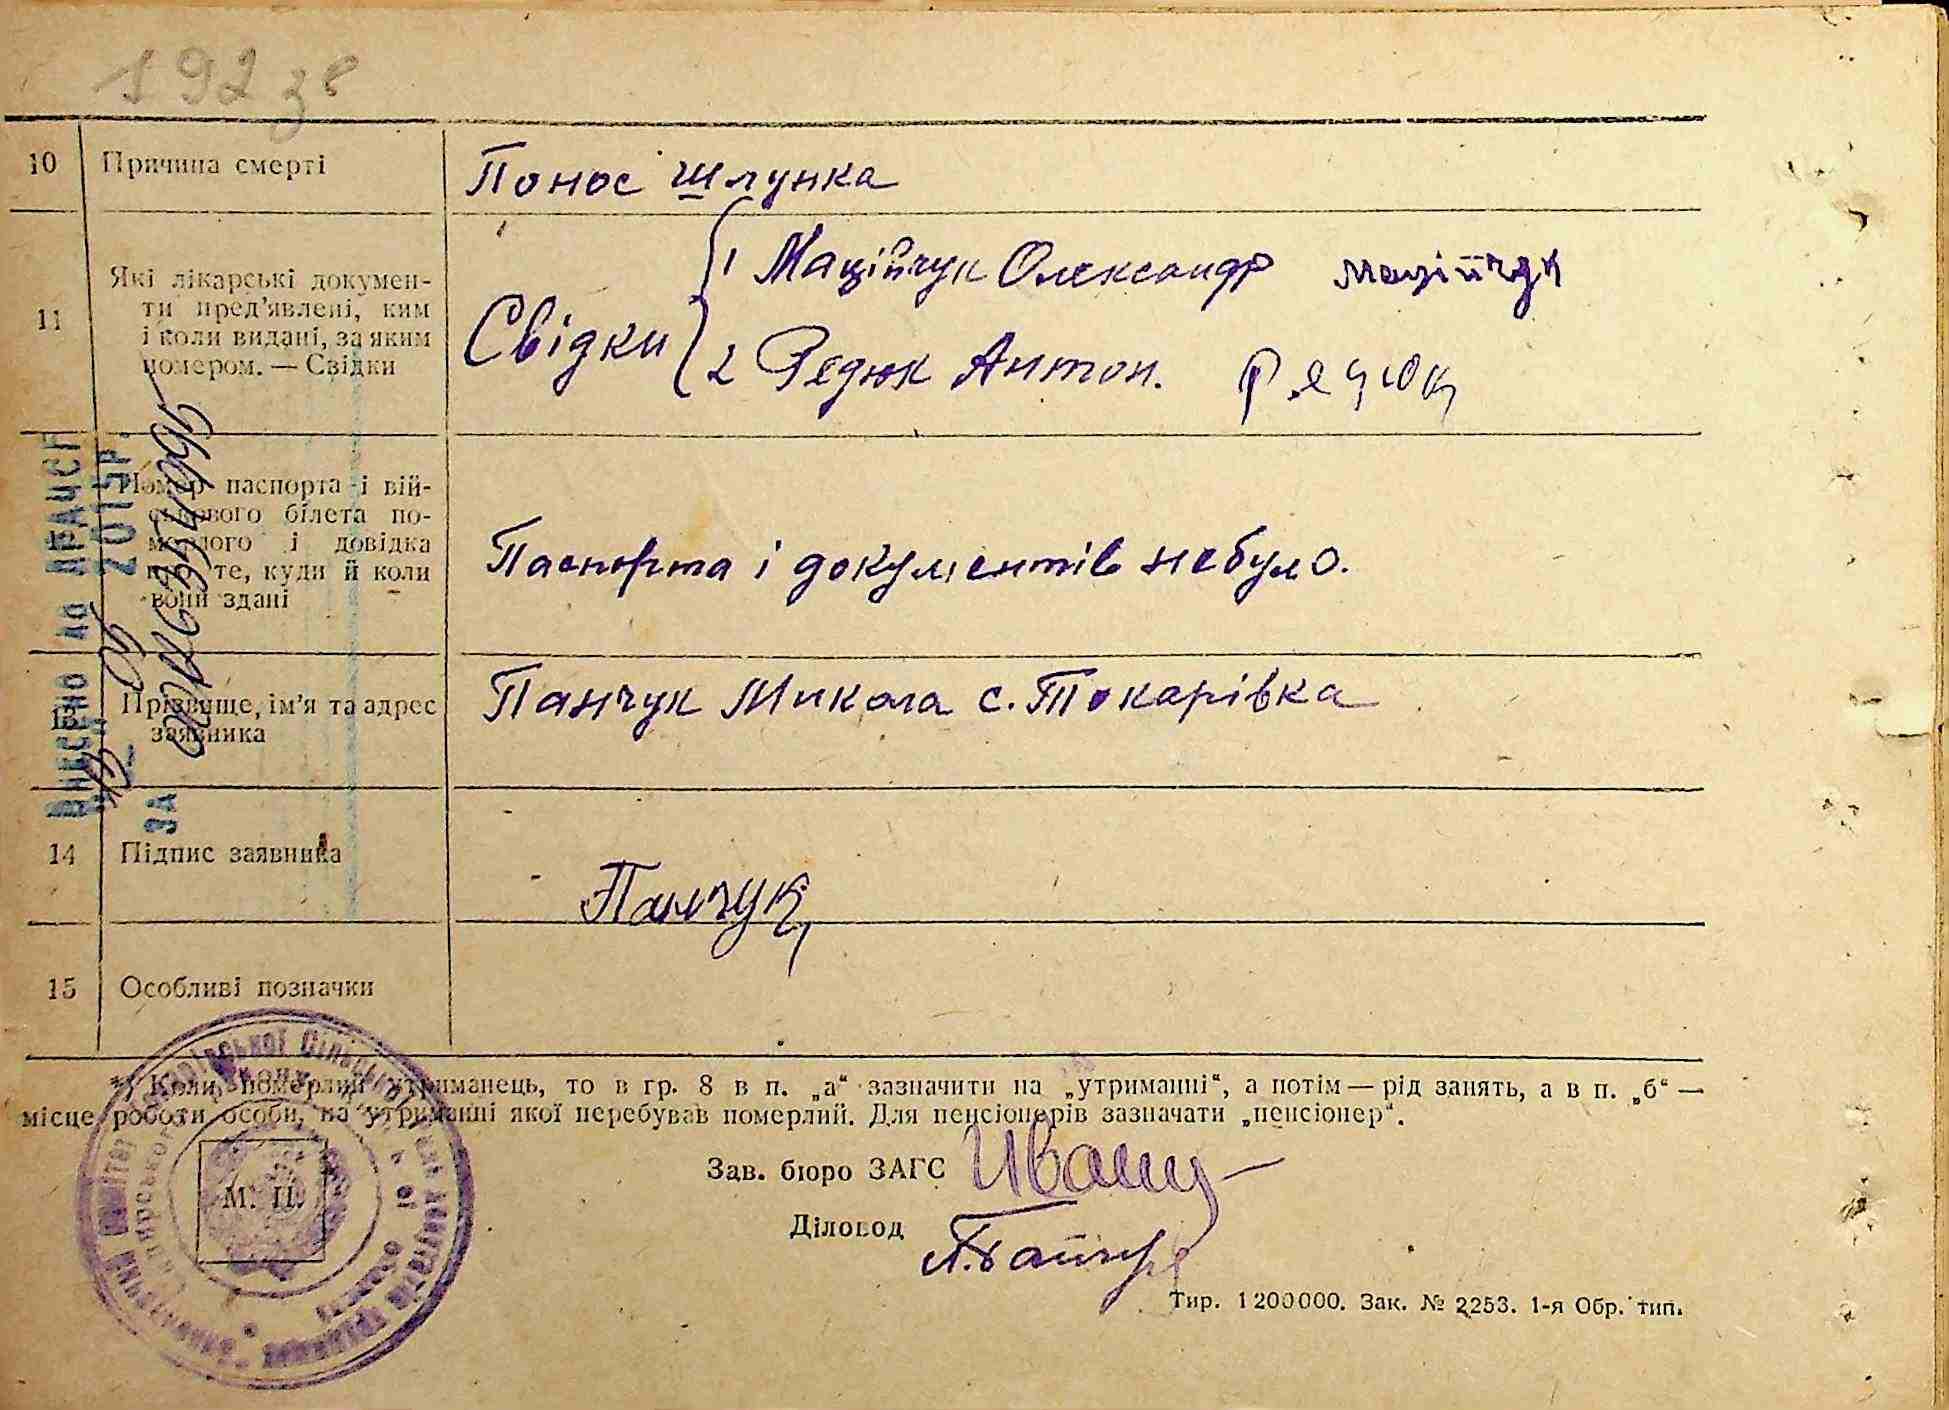 192 зв
10 Причина смерті Понос шлунка
11 Які лікарські докумен-
ти пред'явлені, ким
і коли видані, за яким
номером. — Свідки
Свідки
1 Маційчук Олександр Маційчук
2 Редюк Антон. Редюк
Номер паспорта і вій-
ськового білета по-
мерлого і довідка
про те, куди й коли
вони здані
Паспорта і документів небуло.
Прізвище, ім'я та адрес
заявника
Панчук Микола с. Токарівка
14 Підпис заявника Панчук
15 Особливі позначки
Внесено до ДРАЦСГ
2015р.
ЗА
*) Коли померлий утриманець, то в гр. 8 в п. „а“ зазначити на „утриманні“, а потім — рід занять, а в п. „б“ —
місце роботи особи, на утриманні якої перебував померлий. Для пенсіонерів зазначати „пенсіонер“.
М. П.
Зав. бюро ЗАГС
Діловод
Тир. 1200000. Зак. № 2253. 1-я Обр. тип.